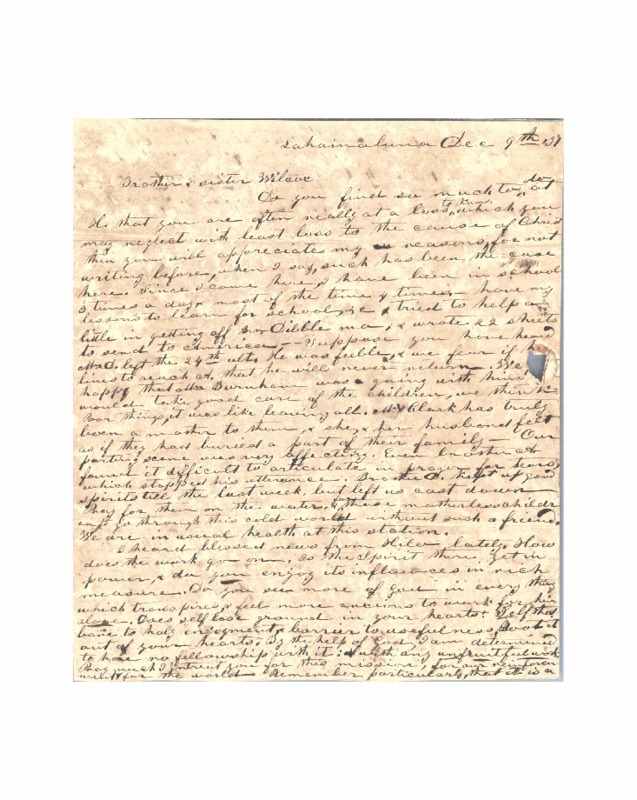 Lahainaluna Dec 9th '37
Brother & sister Wilcox
Do you find so much to do at
H. that you are often really at a loss to know which you
may neglect with least loss to the cause of Christ
then you will appreciate my reasons for not
writing before, when I say, such has been the case
here. Since I came here I have been in school
3 times a day most of the time & times have my
lessons to learn for school, &c & tried to help a
little in getting off Mr Dibble ma, & wrote 22 sheets
to send to America — Suppose you have heard
Mr D. left the 24th ult. He was feeble, & we fear if he
lives to reach A. that he will never return. We
happy that Mr Burnham was going with him
would take good care of the children, we think
Poor things, it was like leaving all. Mrs Clark has truly
been a mother to them & she & her husband felt
as if they had buried a part of their family — Our
parting scene was very affecting. Even brother A
found it difficult to articulate in prayer for tears
which stopped his utterance. Brother D. kept up good
spirits till the last week, but left us cast down
Pray for them on the water, & these motherless childr
en go through this cold world without such a friend.
We are in usual health at this station.
I heard blessed news from Hilo lately. How
does the work go on. Is the Spirit there yet in
power, & do you enjoy its influences in rich
measure. Do you see more of God in every thing
which transpires & feel more anxious to work for him
alone. Does self lose ground in your hearts & Self that
bane to holy enjoyment & barrier to usefulness, Root it
out of your hearts. By the help of God I am determined
to have no fellowship with it: with any unfruitful work
Pray much I intreat you for this mission, for our
ments for the world. Remember particularly, that it is a